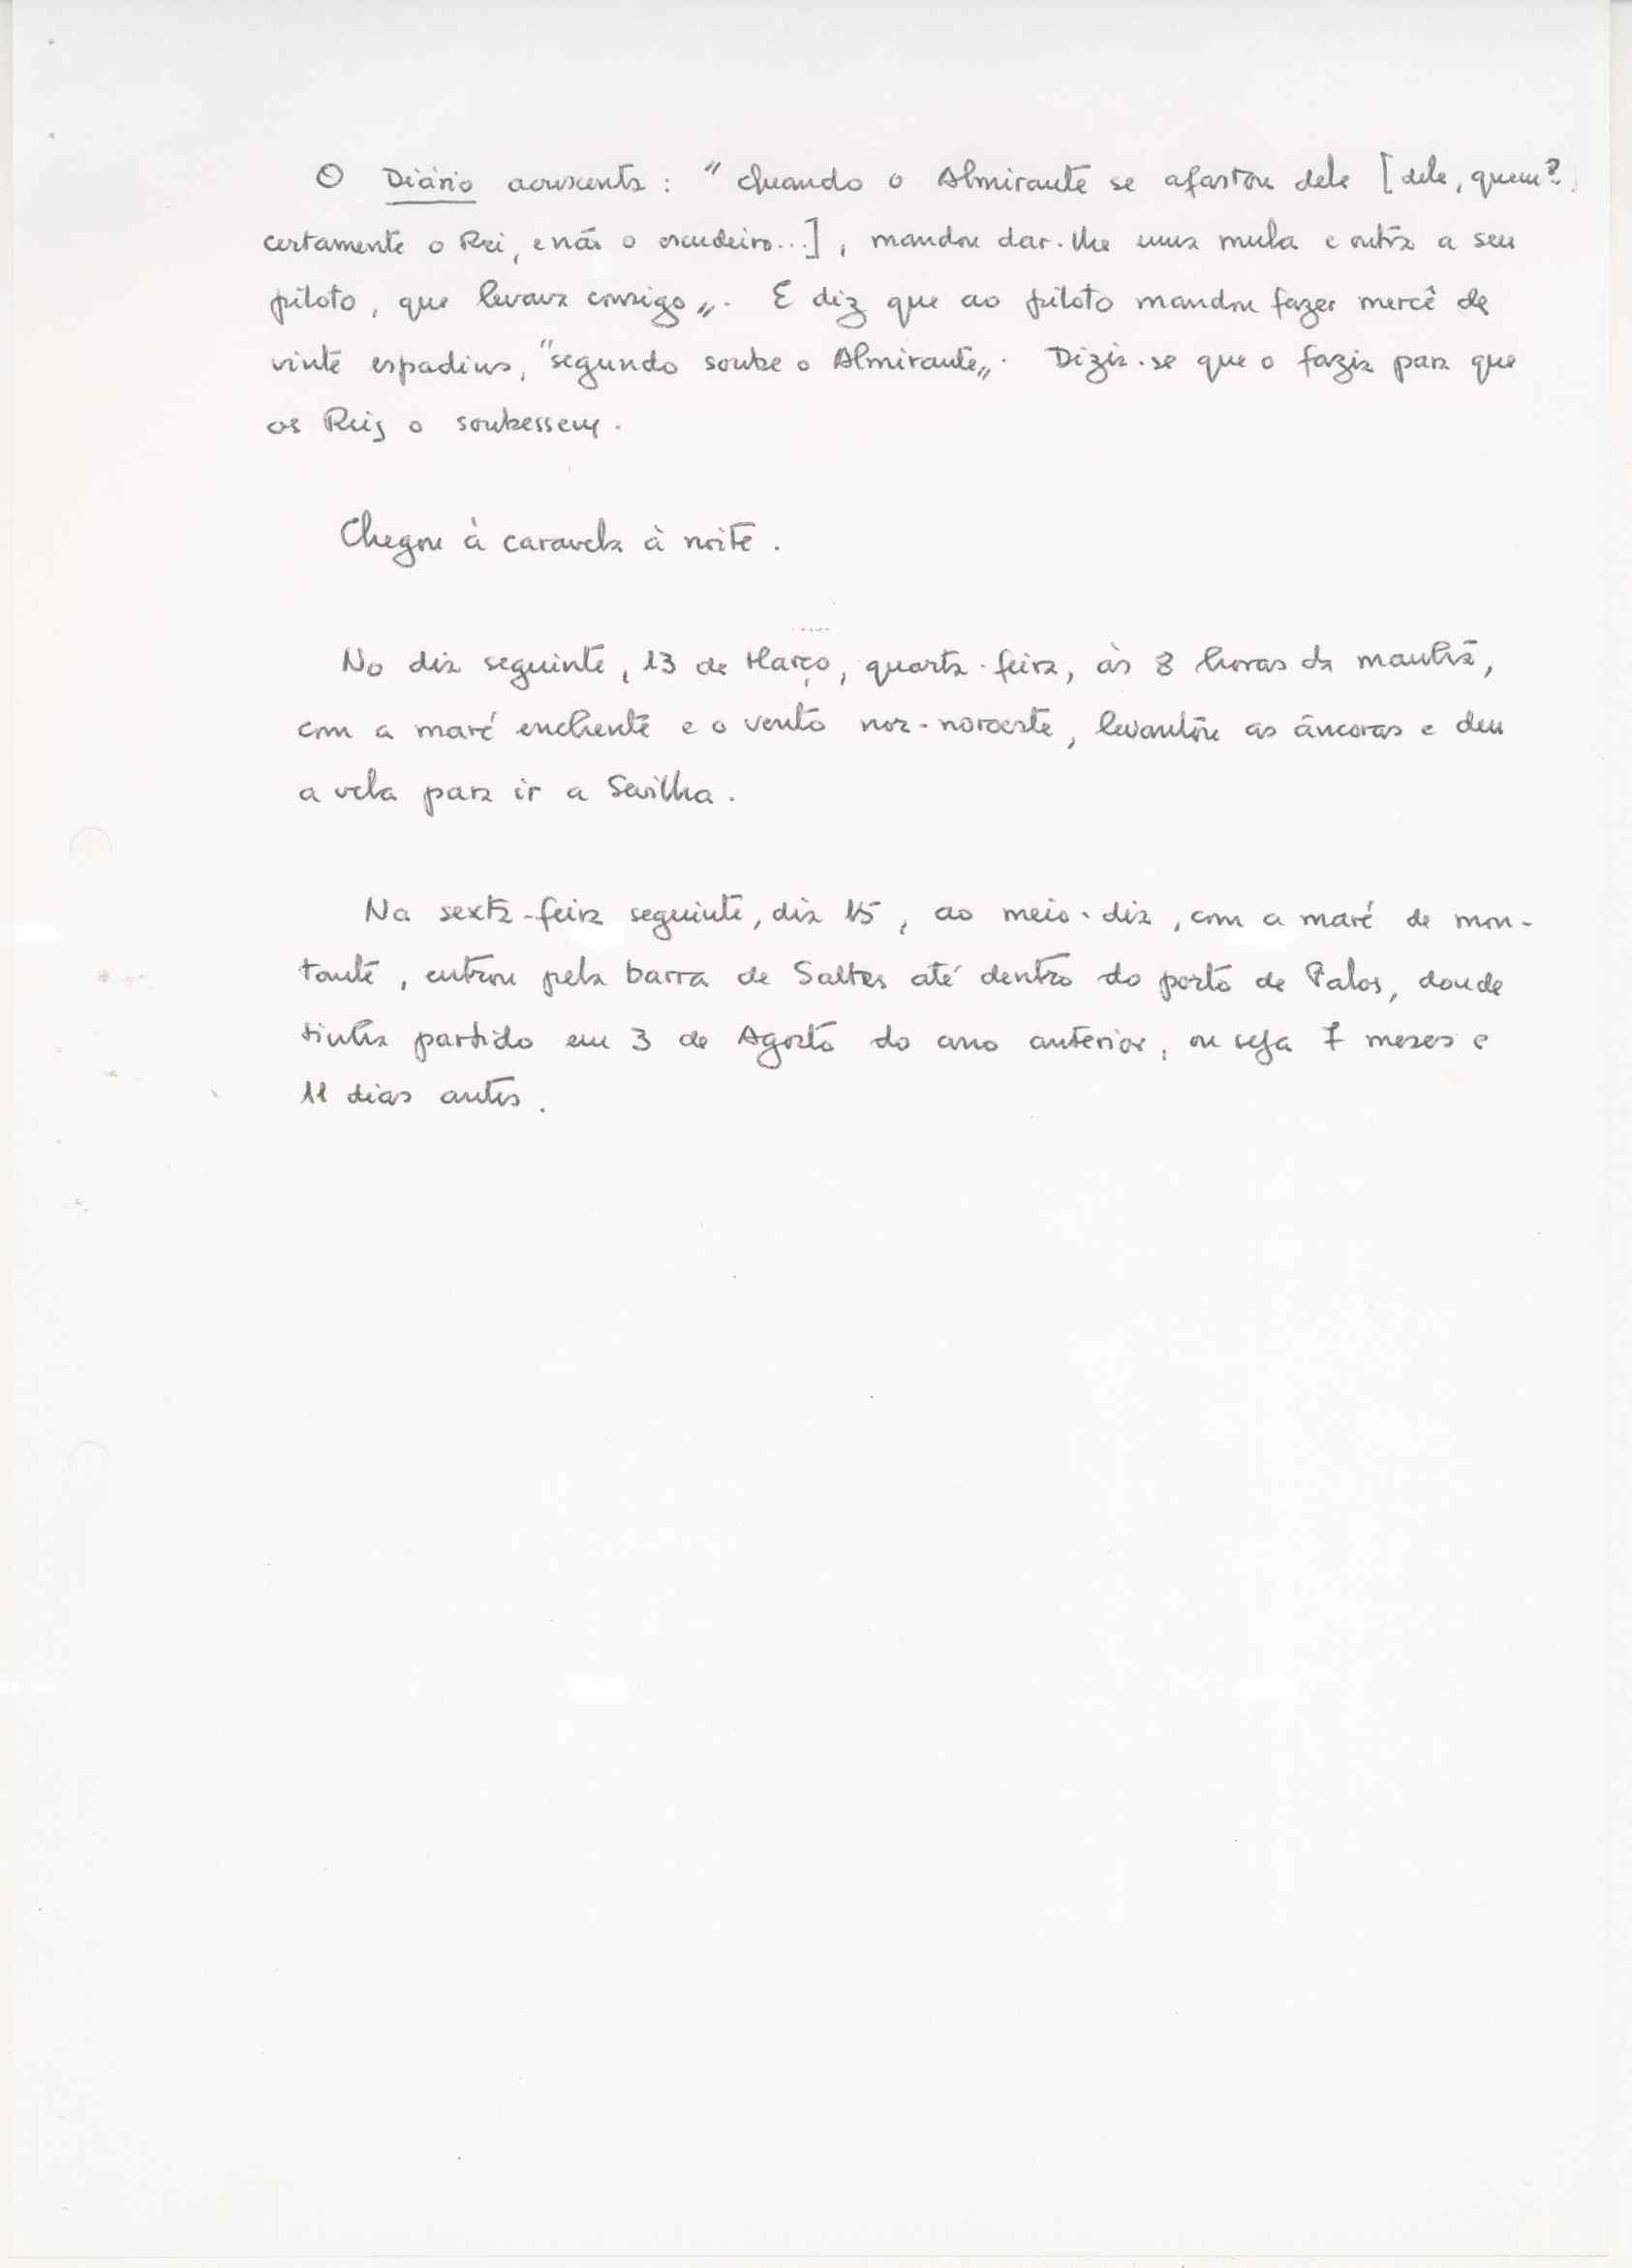 O Diário acrescenta: "Quando o Almirante se afastou dele [dele, quem?
certamente o Rei, e não o escudeiro...], mandou dar-lhe uma mula e outra a seu
piloto, que levava consigo". E diz que ao piloto mandou fazer mercê de
vinte espadins, "segundo soube o Almirante". Dizia-se que o fazia para que
os Reis o soubessem.
Chegou à caravela à noite.
No dia seguinte, 13 de Março, quarta-feira, às 8 horas da manhã,
com a maré enchente e o vento nor-noroeste, levantou as âncoras e deu
a vela para ir a Sevilha.
Na sexta-feira seguinte, dia 15, ao meio-dia, com a maré de mon-
tante, entrou pela barra de Saltes até dentro do porto de Palos, donde
tinha partido em 3 de Agosto do ano anterior, ou seja 7 meses e
11 dias antes.